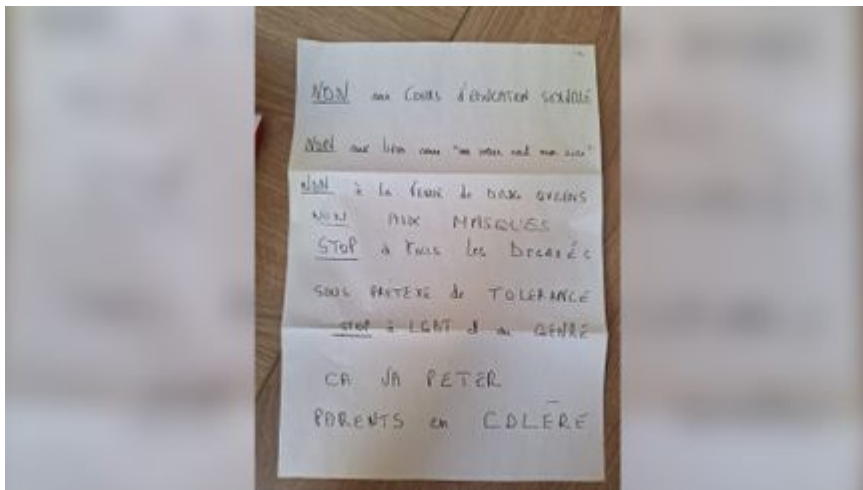 NON aux COURS d'EDUCATION SEXUELLE
NON aux livres comme "
NON à la VENUE de DRAG QUEENS
NON AUX MASQUES
STOP à TOUS les
SOUS PRETEXTE de TOLERANCE
STOP à LGBT et au GENRE
CA VA PETER
PARENTS en COLERE